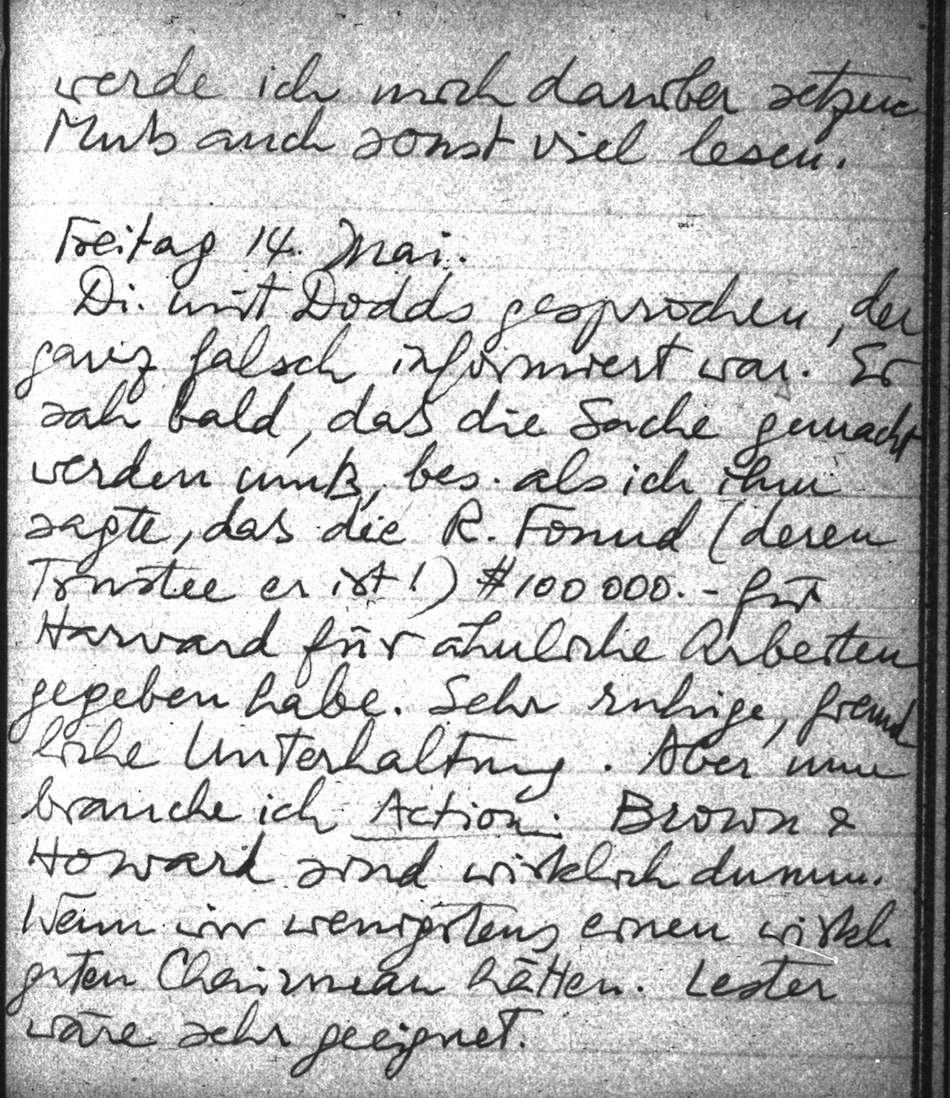 werde ich mich darüber setzen
Muß auch sonst viel lesen.
Freitag 14. Mai.
Di. mit Dodds gesprochen, der
ganz falsch informiert war. Er
sah bald, daß die Sache gemacht
werden muß, bes. als ich ihm
sagte, das die R. Found (deren
Trustee er ist!) $100 000.- für
Harvard für ähnliche Arbeiten
gegeben habe. Sehr ruhige, freund
liche Unterhaltung. Aber nun
brauche ich Action. Brown &
Howard sind wirklich dumm.
Wenn wir wenigstens einen wirkl.
guten Chairman hätten. Lester
wäre sehr geeignet.